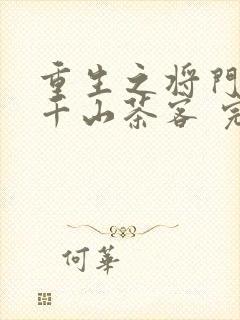 重生之将門
千山茶客 完
何華